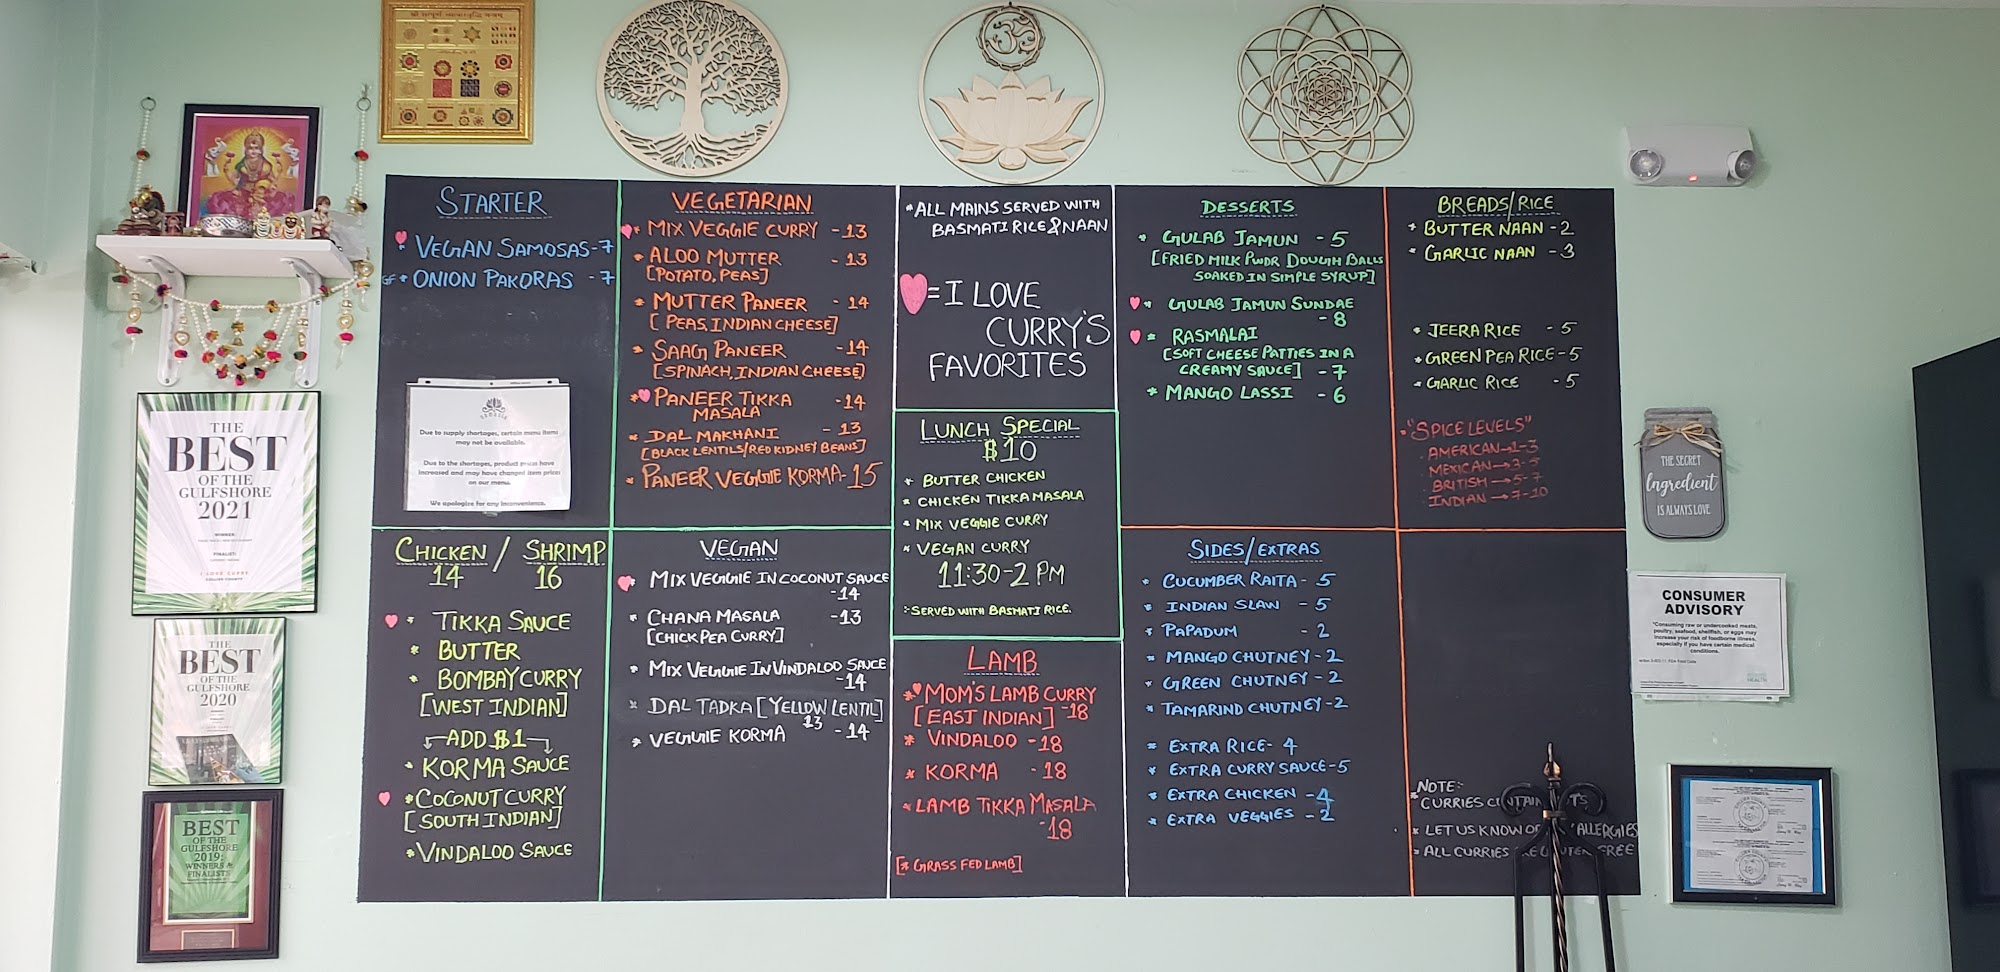 STARTER
VEGAN SAMOSAS-7
GF * ONION PAKORAS - 7
Due to supply shortages, certain menu items
may not be available.
Due to the shortages, product prices have
increased and may have changed item prices
on our menu.
We apologize for any inconvenience.
VEGETARIAN
* MIX VEGGIE CURRY - 13
* ALOO MUTTER - 13
[POTATO, PEAS]
* MUTTER PANEER - 14
[PEAS, INDIAN CHEESE]
* SAAG PANEER - 14
[SPINACH, INDIAN CHEESE]
* PANEER TIKKA - 14
MASALA
* DAL MAKHANI - 13
[BLACK LENTILS/RED KIDNEY BEANS]
* PANEER VEGGIE KORMA-15
* ALL MAINS SERVED WITH
BASMATI RICE & NAAN
= I LOVE
CURRY'S
FAVORITES
LUNCH SPECIAL
$10
* BUTTER CHICKEN
* CHICKEN TIKKA MASALA
* MIX VEGGIE CURRY
* VEGAN CURRY
11:30-2 PM
SERVED WITH BASMATI RICE.
DESSERTS
* GULAB JAMUN - 5
[FRIED MILK PWDR DOUGH BALLS
SOAKED IN SIMPLE SYRUP]
* GULAB JAMUN SUNDAE
- 8
* RASMALAI
[SOFT CHEESE PATTIES IN A
CREAMY SAUCE] - 7
* MANGO LASSI - 6
BREADS/RICE
* BUTTER NAAN - 2
* GARLIC NAAN - 3
* JEERA RICE - 5
* GREEN PEA RICE - 5
* GARLIC RICE - 5
"SPICE LEVELS"
AMERICAN→1-3
MEXICAN→3-5
BRITISH→5-7
INDIAN→7-10
CHICKEN / SHRIMP
14 16
* TIKKA SAUCE
* BUTTER
* BOMBAY CURRY
[WEST INDIAN]
ADD $1
* KORMA SAUCE
* COCONUT CURRY
[SOUTH INDIAN]
* VINDALOO SAUCE
VEGAN
* MIX VEGGIE IN COCONUT SAUCE
- 14
* CHANA MASALA - 13
[CHICK PEA CURRY]
* MIX VEGGIE IN VINDALOO SAUCE
- 14
* DAL TADKA [YELLOW LENTIL]
13
* VEGGIE KORMA - 14
LAMB
* MOM'S LAMB CURRY
[EAST INDIAN] - 18
* VINDALOO - 18
* KORMA - 18
* LAMB TIKKA MASALA
- 18
[* GRASS FED LAMB]
SIDES/EXTRAS
* CUCUMBER RAITA - 5
* INDIAN SLAW - 5
* PAPADUM - 2
* MANGO CHUTNEY - 2
* GREEN CHUTNEY - 2
* TAMARIND CHUTNEY - 2
* EXTRA RICE - 4
* EXTRA CURRY SAUCE - 5
* EXTRA CHICKEN - 4
* EXTRA VEGGIES - 2
NOTE:-
* CURRIES
* LET US KNOW ALLERGIES
* ALL CURRIES FREE
THE
BEST
OF THE
GULFSHORE
2021
WINNER:
FINALIST:
I LOVE CURRY
THE
BEST
OF THE
GULFSHORE
2020
BEST
OF THE
GULFSHORE
2019:
WINNERS &
FINALISTS
THE SECRET
Ingredient
IS ALWAYS LOVE
CONSUMER
ADVISORY
"Consuming raw or undercooked meats,
poultry, seafood, shellfish, or eggs may
increase your risk of foodborne illness,
especially if you have certain medical
conditions.